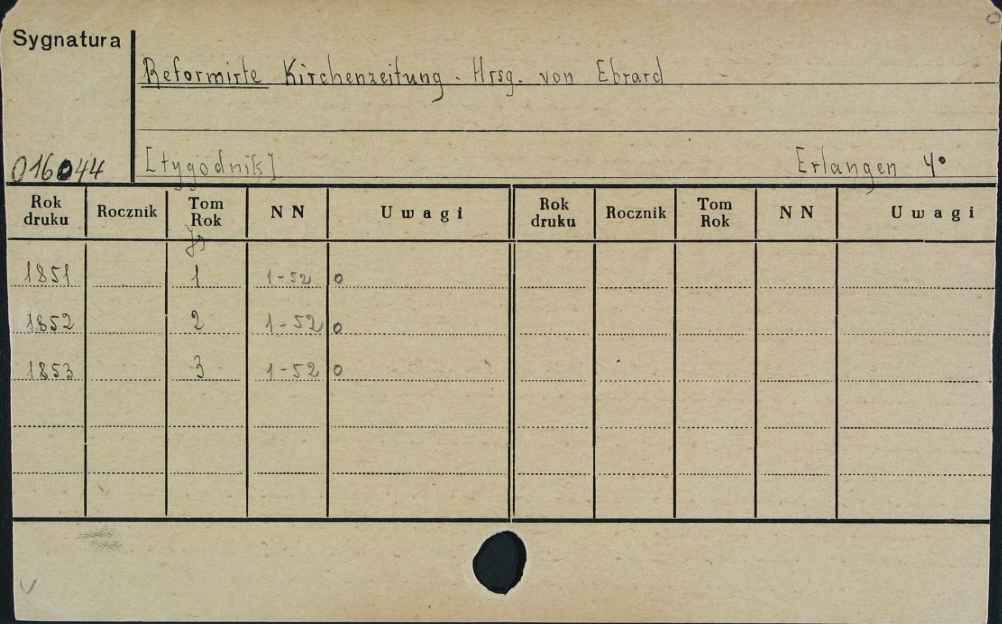 Sygnatura
Reformirte Kirchenzeitung. Hrsg. von Ebrard
016044 [tygodnik] Erlangen 4°
Rok druku Rocznik Tom Rok NN Uwagi Rok druku Rocznik Tom Rok NN Uwagi
1851 1 1-52 o
1852 2 1-52 o
1853 3 1-52 o